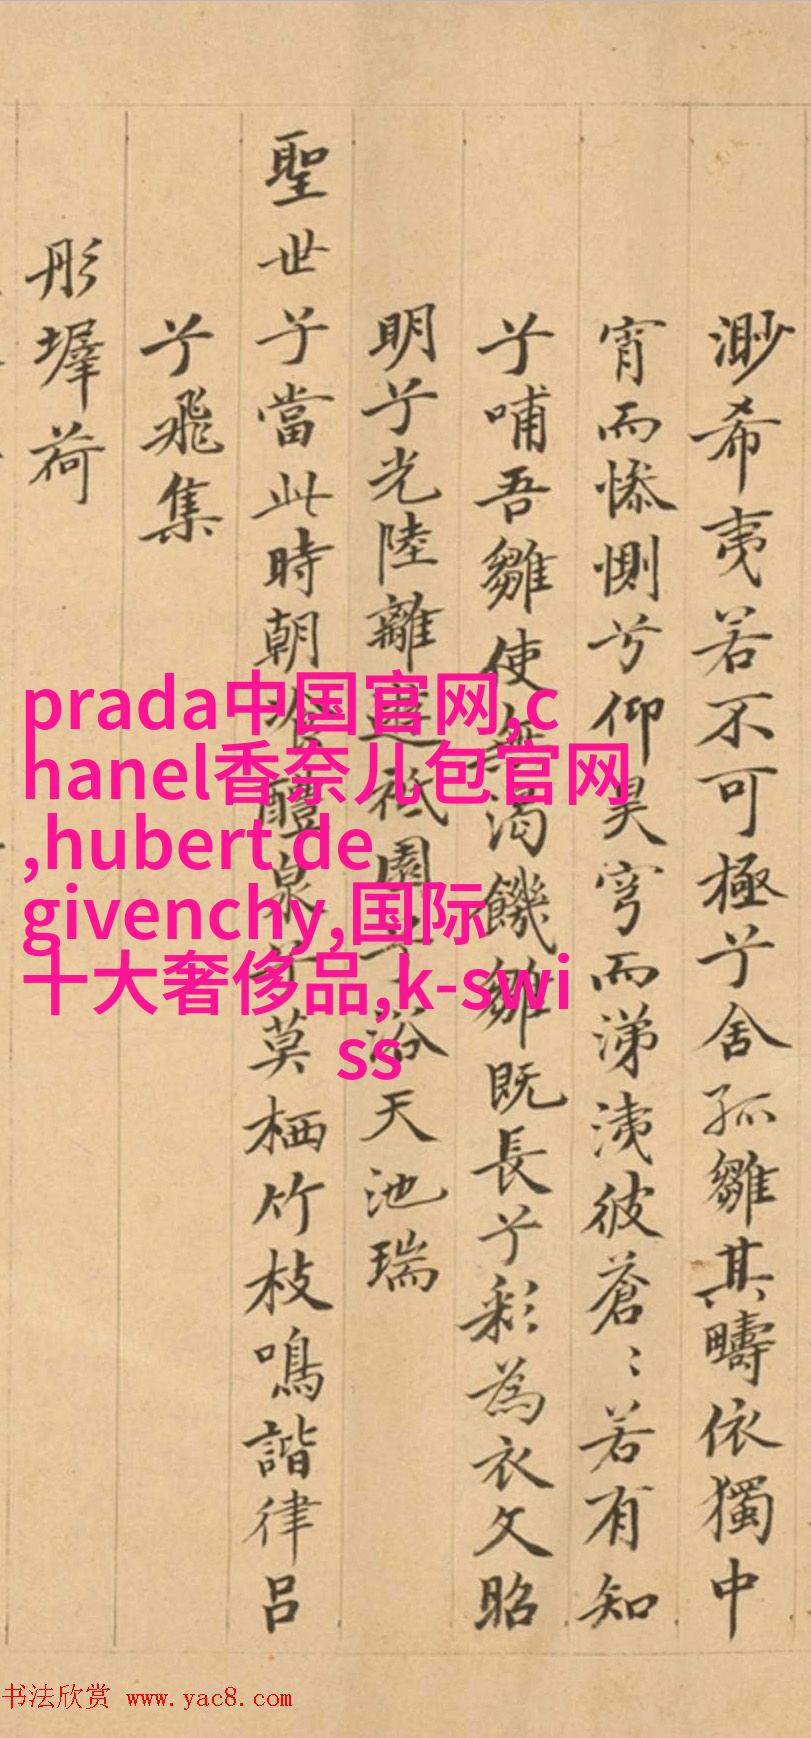 渺希夷若不可極兮舍孤雛其疇依獨中
宵而惨惻兮仰昊穹而涕洟彼蒼〻若有知
兮哺吾雛使無渴饑雛既長兮彩為衣文昭
明兮光陸離祇園兮浴天池瑞
聖世兮當此時朝醴泉兮莫栖竹枝鳴諧律吕
兮飛集
彤墀荷
prada中国官网,c
hanel香奈儿包官网
,hubert de
givenchy,国际
十大奢侈品,k-swi
ss
书法欣赏 www.yac8.com